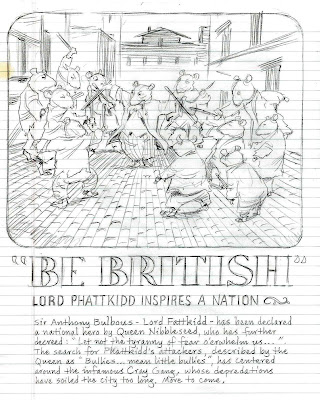 "BE BRITISH"
LORD PHATTKIDD INSPIRES A NATION
Sir Anthony Bulbous - Lord Fattkidd - has been declared
a national hero by Queen Nibbleseed, who has further
decreed: "Let not the tyranny of fear o'erwhelm us..."
The search for Phattkidd's attackers, described by the
Queen as "Bullies... mean little bullies", has centered
around the infamous Cray Gang, whose depredations
have soiled the city too long. More to come.